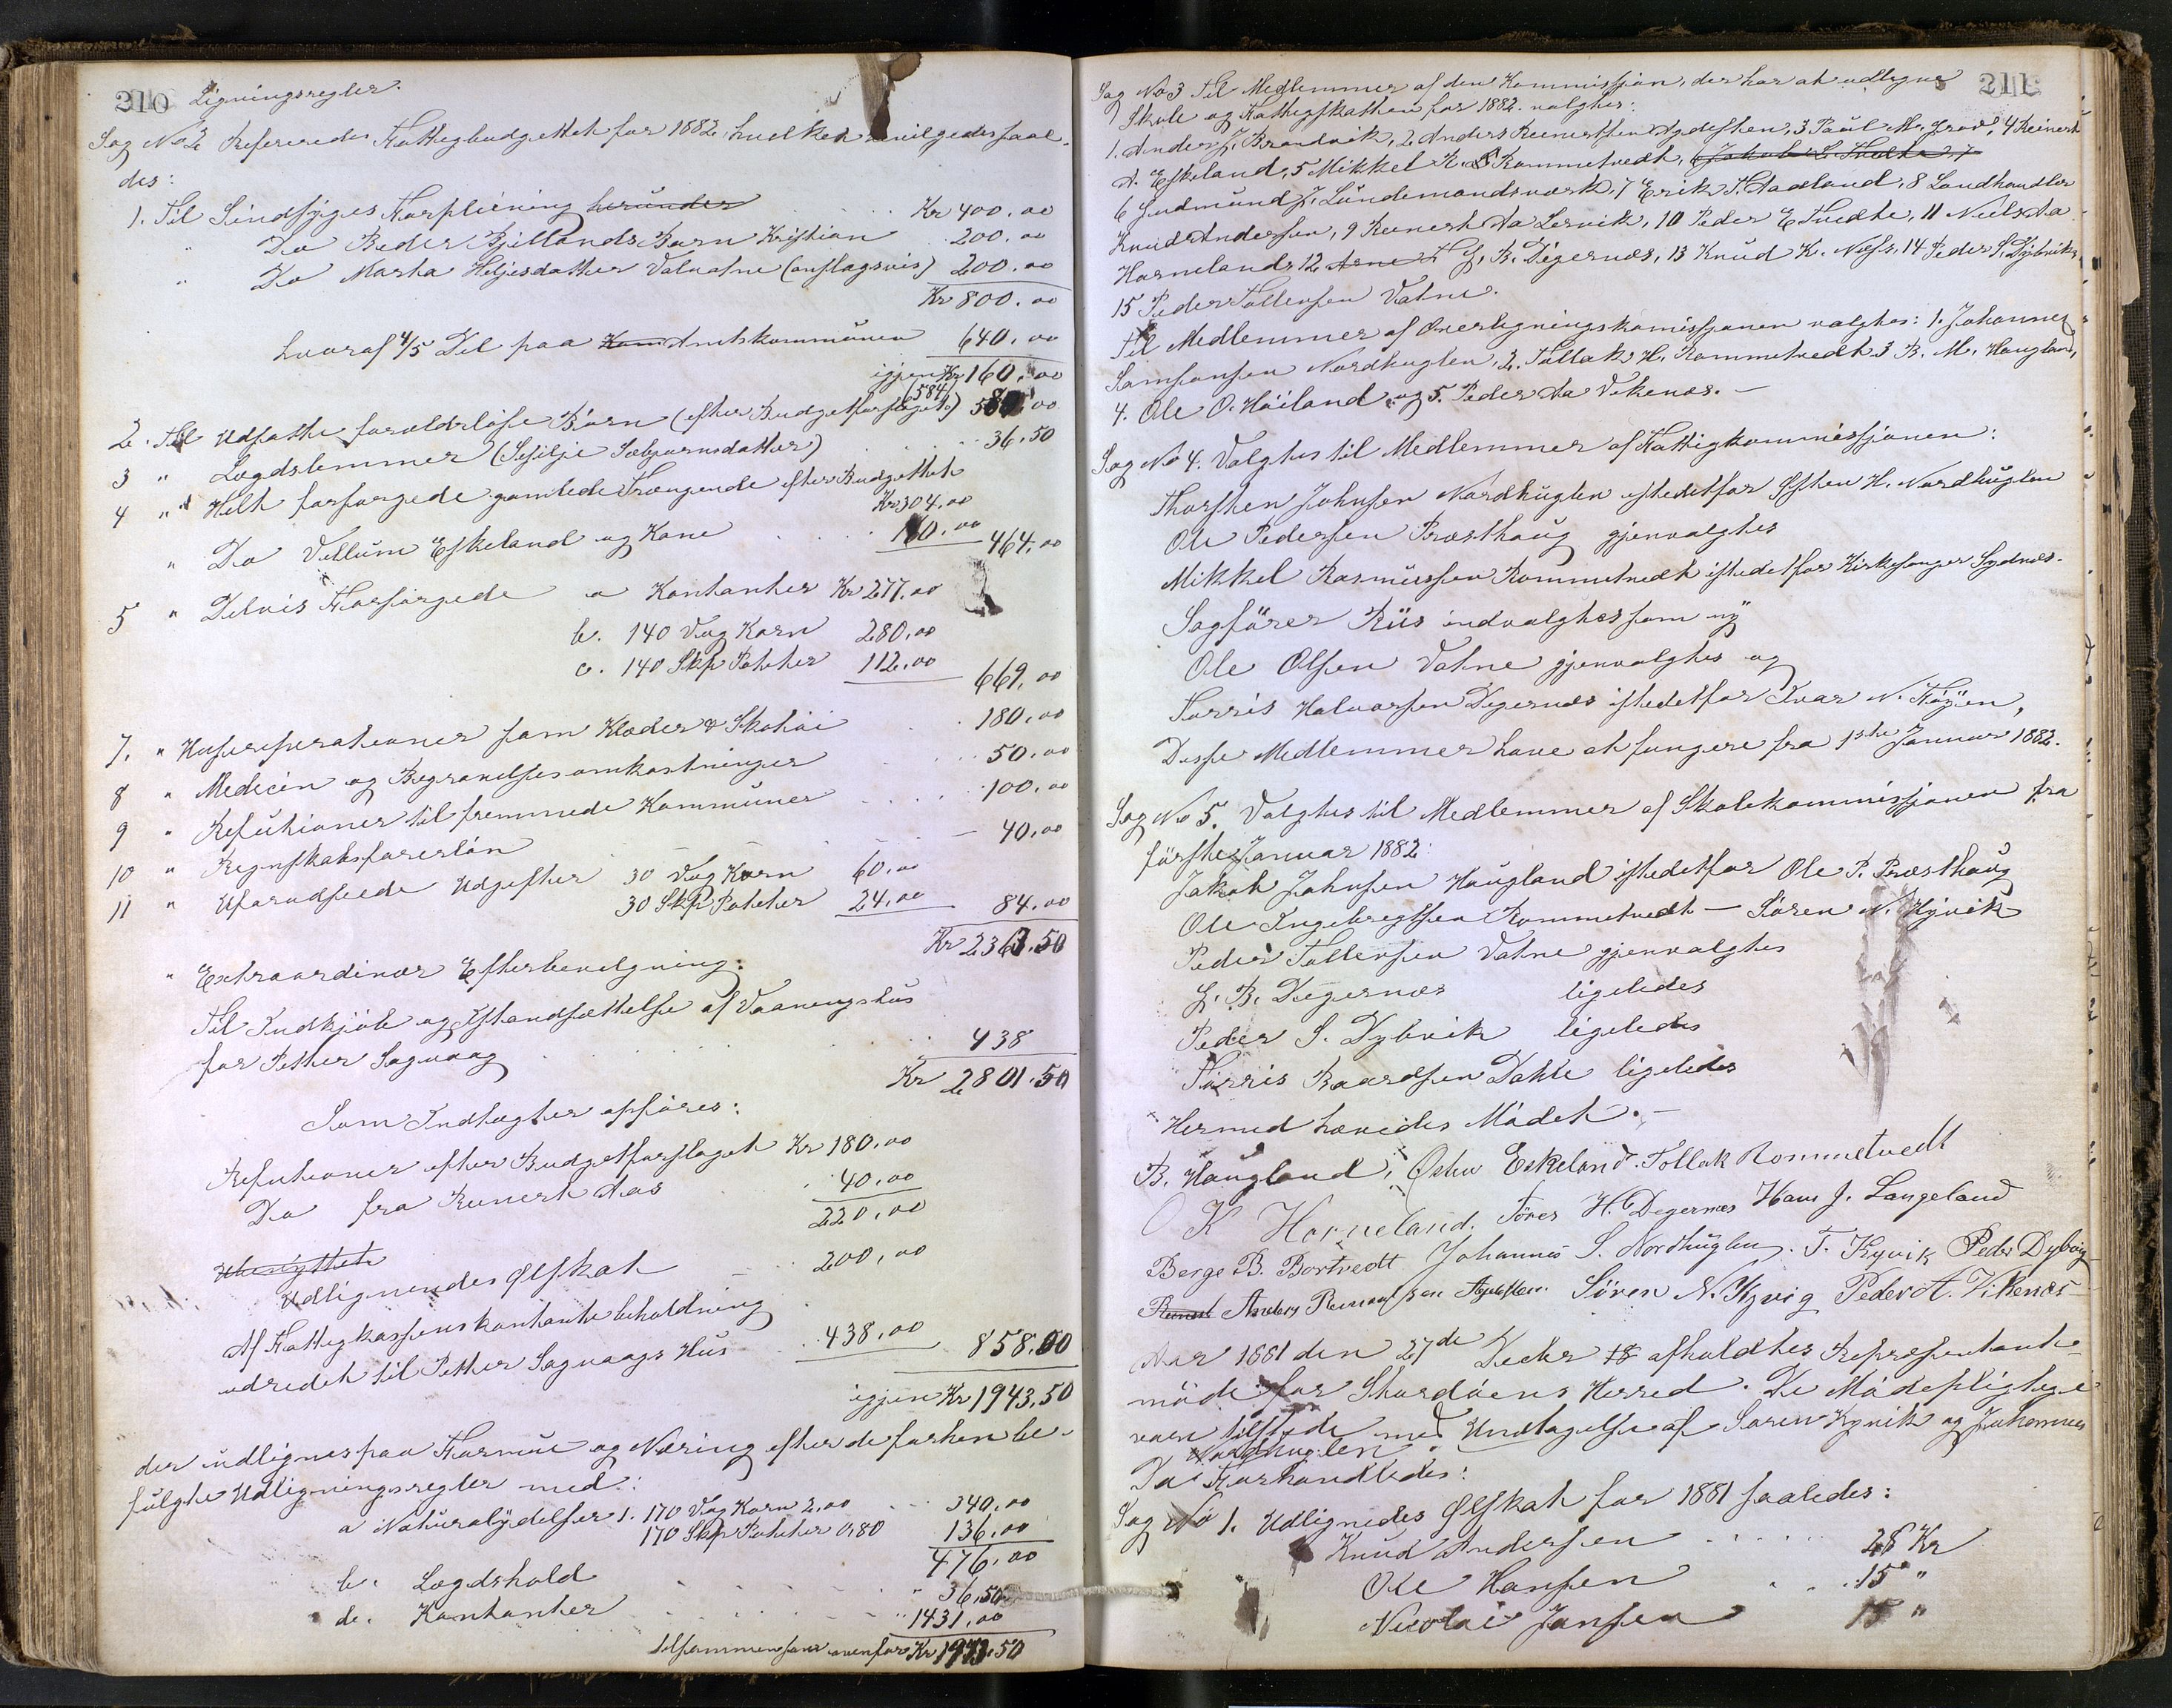 210 Ligningsregler.
Sag No 2 Refereredes Fattigbudgettet for 1882, hvilket bevilgedes saale-
des:
1. Til Sindsyges Forpleining herunder Kr 400,00
" Do Peder Gjellands Barn Kristian 200,00
" Do Marta Heljesdatter Valvatne (anslagsvis) 200,00
Kr 800,00
hvoraf 4/5 Del paa Kom Amtskommunen 640,00
igjen Kr 160,00
2. Til Udsatte forældreløse Børn (efter Budgetforslaget) 584,00
3 " Lægdslemmer (Sesilje Sæbjørnsdatter) 36,50
4 " Helt forsørgede gamle Trængende efter Budgettet
Kr 304,00
" Do Vellum Eskeland og Kone 160,00 464,00
5 " Delvis Forsørgede a Kontanter Kr 277,00
b. 140 Vog Korn 280,00
c. 140 Skp Poteter 112,00 669,00
7. " Husreparationer som Klæder & Skotøi 180,00
8 " Medicin og Begravelsesomkostninger 50,00
9 " Refutioner til fremmede Kommuner 100,00
10 " Regnskabsførerløn 40,00
11 " Uforudseede Udgifter 30 Vog Korn 60,00
30 Skp Poteter 24,00 84,00
Kr 2363,50
" Extraordinær Efterbevilgning:
Til Indkjøb og Istandsættelse af Vaaningshus
for Petter Sagvaag 438
Kr 2801,50
Som Indtægter opføres:
Refutioner efter Budgetforslaget Kr 180,00
Do fra Reinert Aas 40,00
220,00
Ubenyttet
Udlignendes Ølskat 200,00
Af Fattigkassens kontante beholdning
udredet til Petter Sagvaags Hus 438,00 858,00
igjen Kr 1943,50
der udlignes paa Formue og Næring efter de forhen be-
fulgte Udligningsregler med:
a Naturalydelser 1. 170 Vog Korn 2,00 340,00
170 Skp Poteter 0,80 136,00
476,00
b. Lægdshold 36,50
c. Kontanter 1431,00
tilsammen som ovenfor Kr 1943,50
211
Sag No 3 Til Medlemmer af den Kommission, der har at udligne
Skole og Fattigskatten for 1882 valgtes:
1. Anders J. Brandvik, 2 Anders Reinertsen Agdesten, 3 Paul M. Grov, 4 Reinert
A. Eskeland, 5 Mikkel R. Rommetvedt, 6 Jakob L. Tvedte, 7
6 Gudmund J. Lundemandsværk, 7 Erik T. Aadland, 8 Landhandler
Knud Andersen, 9 Reinert Aa Lervik, 10 Peder E Tvedte, 11 Niels Aa
Horneland, 12 Arne T J. B. Digernæs, 13 Knud K. Næss, 14 Peder S. Dybvik,
15 Peder Tollevsen Vatne.
Til Medlemmer af Overligningskommissjonen valgtes: 1. Johannes
Samsonsen Nordhuglen, 2. Tollak H. Rommetvedt 3 B. M. Haugland,
4. Ole O. Høiland og 5. Peder Aa Vikenæs. –
Sag No 4. Valgtes til Medlemmer af Fattigkommissjonen:
Thorsten Johnsen Nordhuglen istedetfor Østen H. Nordhuglen
Ole Pedersen Præsthaug gjenvalgtes
Mikkel Rasmussen Rommetvedt istedetfor Kirkesanger Sydnæs.
Sagfører Riis indvalgtes som ny
Ole Olsen Vatne gjenvalgtes og
Torris Halvorsen Digernæs istedetfor Ivar N. Høyen,
Disse Medlemmer have at fungere fra 1ste Januar 1882.
Sag No 5. Valgtes til Medlemmer af Skolekommissjonen fra
første Januar 1882:
Jakob Johnsen Haugland istedetfor Ole P. Præsthaug
Ole Ingebregtsen Rommetvedt – Søren N. Kyvik
Peder Tollevsen Vatne gjenvalgtes
J. B. Digernæs ligeledes
Peder S. Dybvik ligeledes
Torris Baardsen Dahle ligeledes
Hermed hævedes Mødet. –
B. Haugland. Østen Eskeland. Tollak Rommetvedt
O K Horneland. Töres H. Degernæs Hans J. Langeland
Berge B. Bortvedt Johannes S. Nordhuglen. T. Kyvik Peder Dybvig
Reinert Anders Reinertsen Agdesten. Sören N. Kyvig Peder A. Vikenæs
Aar 1881 den 27de Decbr 18 afholdtes Repræsentant-
møde for Stordøens Herred. De Mødepligtige
vare tilstede med Undtagelse af Søren Kyvik og Johannes
Nordhuglen.
Da Forhandledes:
Sag No 1. Udlignedes Ølskat for 1881 saaledes:
Knud Andersen 28 Kr
Ole Hansen 15 "
Nicolai Jansen 15 "